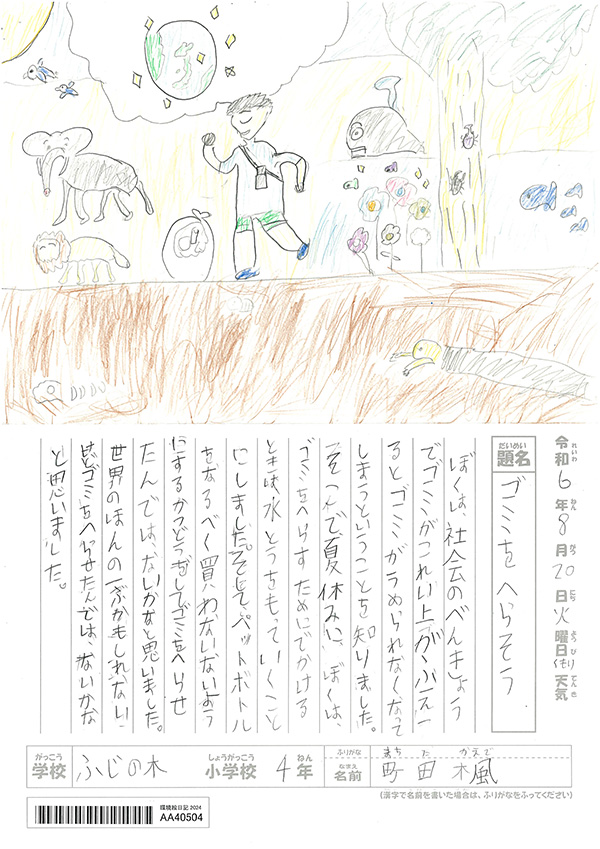 令和6年8月20日火曜日くもり天気
れいわ ねん がつ にち ようび てんき
だいめい
題名 ゴミをへらそう
ぼくは、社会のべんきょう
でゴミがこれい上がふえ
るとゴミがうめられなくなって
しまうということを知りました。
そこで夏休みに、ぼくは、
ゴミをへらすためにでかける
ときは、水とうをもっていくこと
にしました。そしてペットボトル
をなるべく買わないないよう
にするかつどうをしてゴミをへらせ
たんではないかなと思いました。
世界のほんの一ぶかもしれない
けどゴミをへらせたんでは、ないかな
と思いました。
がっこう しょうがっこう ねん
学校 ふじの木 小学校 4年
ふりがな まち た かえで
なまえ
名前 町田 楓
(漢字で名前を書いた場合は、ふりがなをふってください)
環境絵日記 2024
AA40504